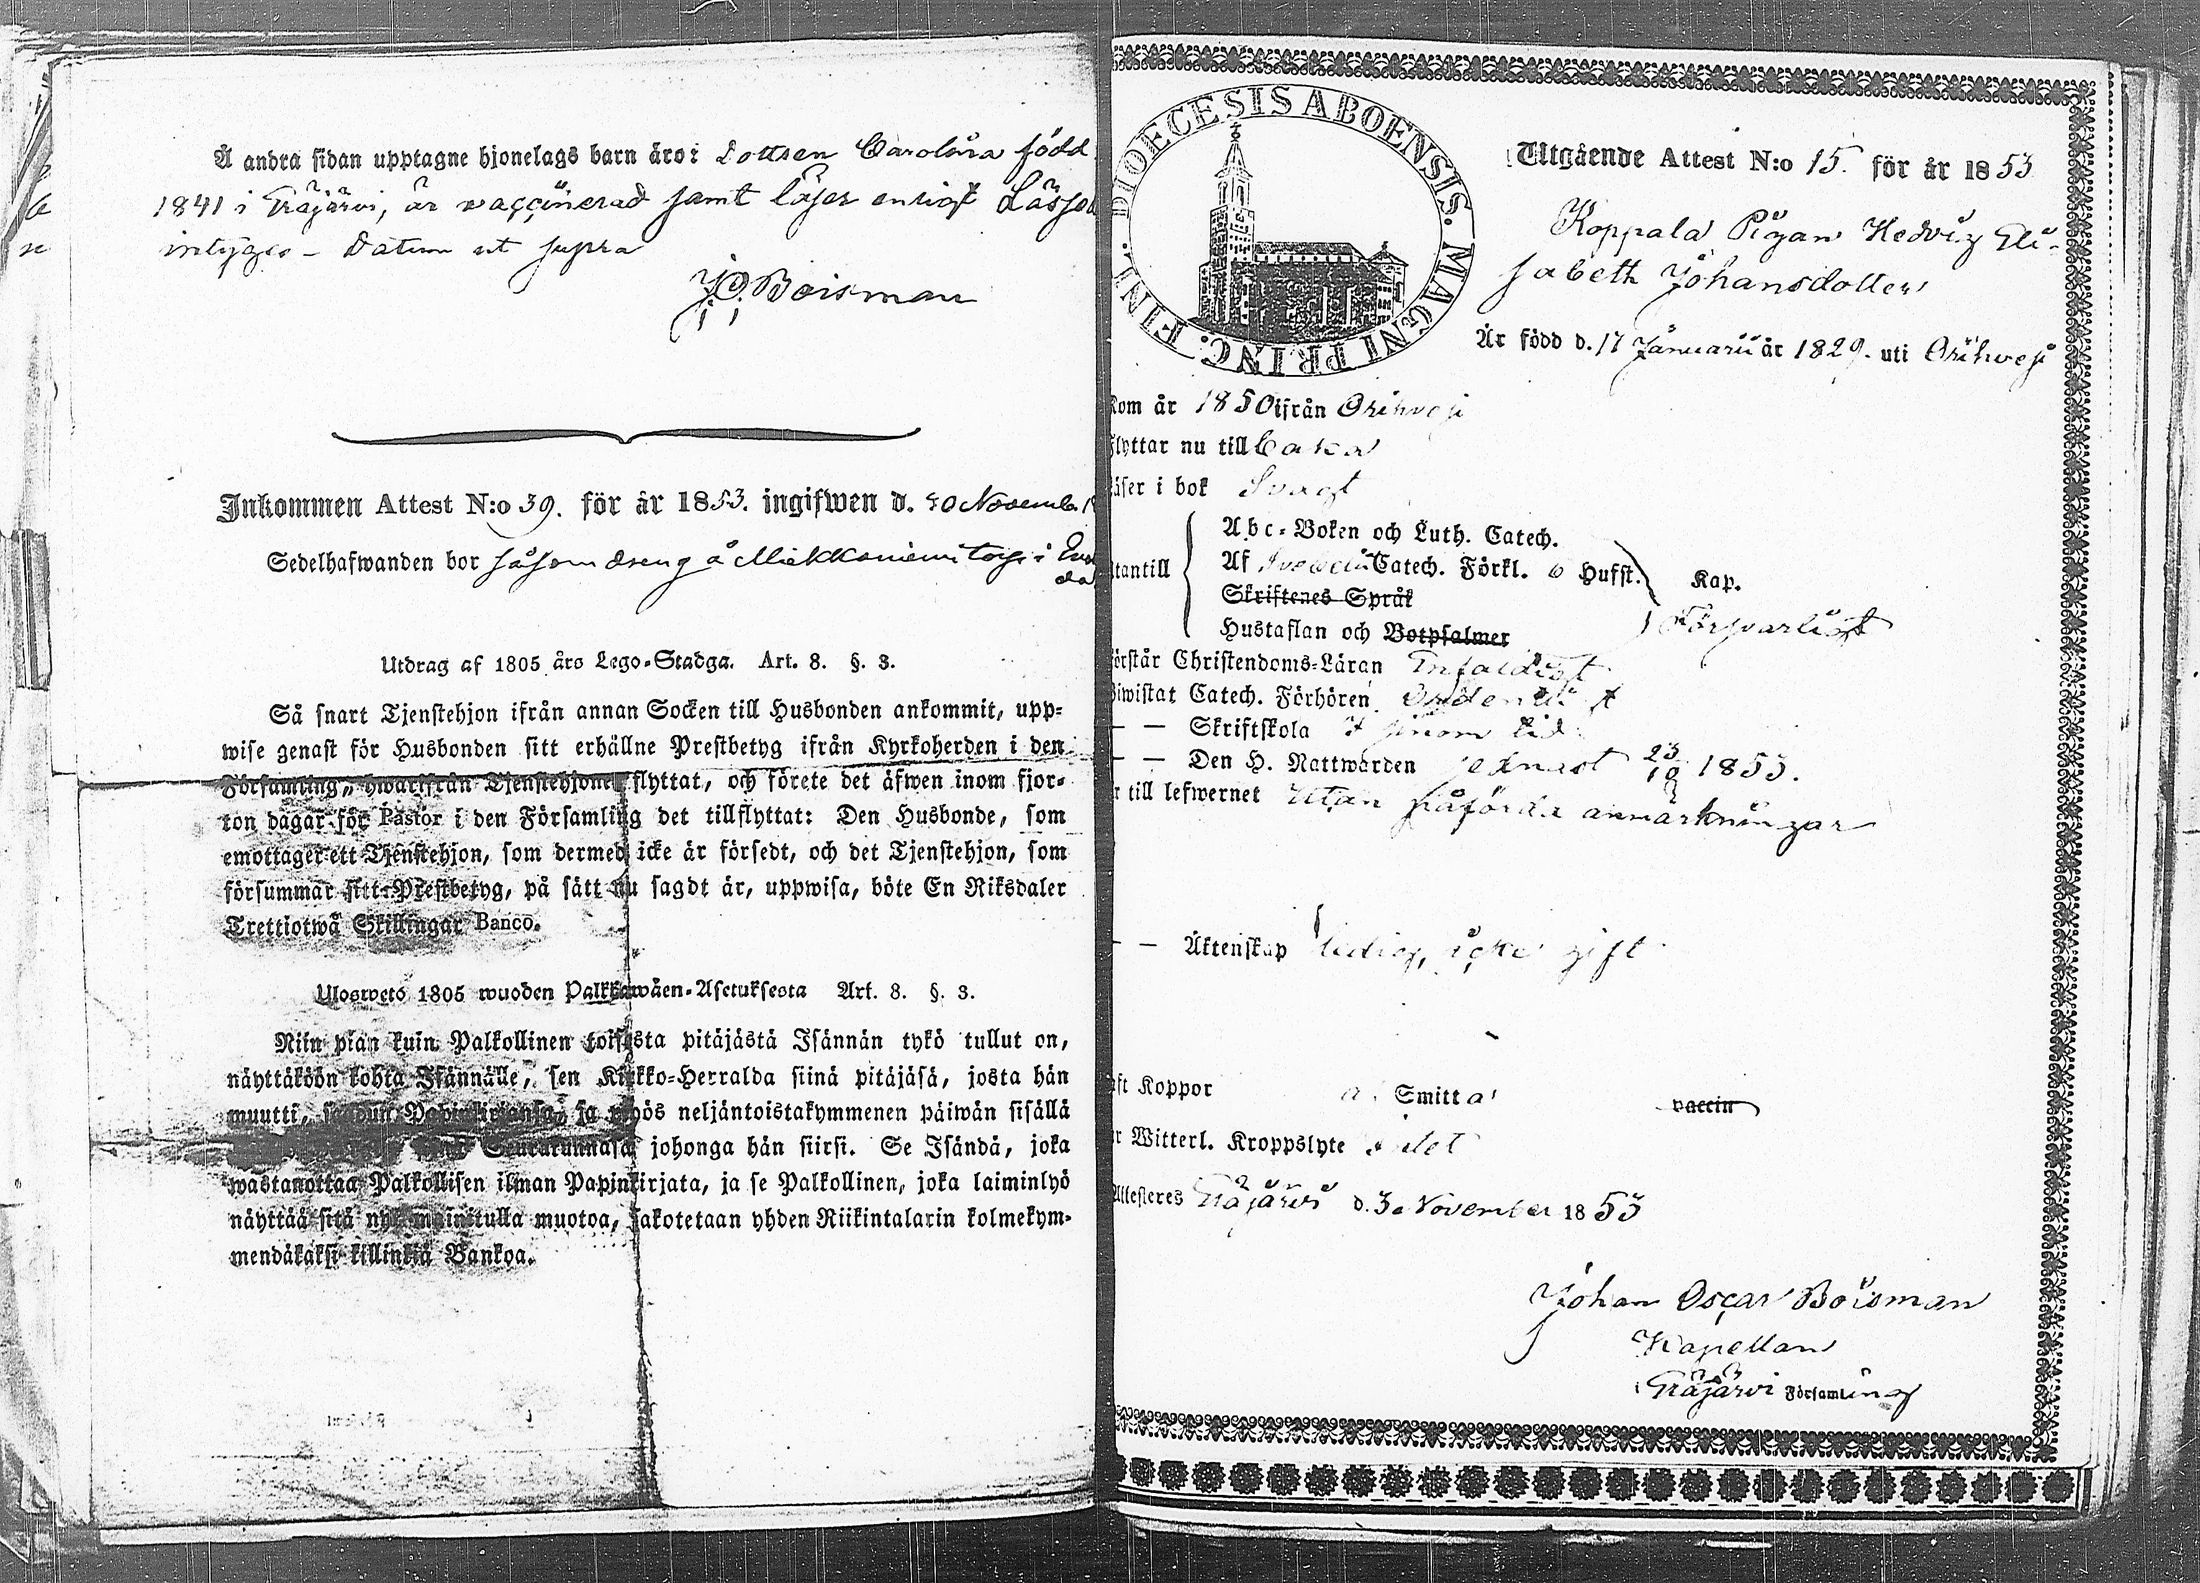 Å andra sidan upptagne hjonelags barn äro: Dottren Carolina född
1841 i Eräjärvi, är vaccinerad samt läser enligt
intygas – Datum ut supra
J. O. Boisman
Inkommen Attest N:o 39. för år 1853. ingifwen d. 30 Novemb.
Sedelhafwanden bor såsom dreng å Mickkoniemi torp i
Utdrag af 1805 års Lego-Stadga. Art. 8. §. 3.
Så snart Tjenstehjon ifrån annan Socken till Husbonden ankommit, upp-
wise genast för Husbonden sitt erhållne Prestbetyg ifrån Kyrkoherden i den
Församling, hwarifrån Tjenstehjonet flyttat, och förete det äfwen inom fjor-
ton dagar för Pastor i den Församling det tillflyttat: Den Husbonde, som
emottager ett Tjenstehjon, som dermed icke är försedt, och det Tjenstehjon, som
försummar sitt Prestbetyg, på sätt nu sagdt är, uppwisa, böte En Riksdaler
Trettiotwå Skillingar Banco.
Ulosweto 1805 wuoden Palkkawäen-Asetuksesta Art. 8. §. 3.
Niin pian kuin Palkollinen toisesta pitäjästä Isännän tykö tullut on,
näyttäköön kohta Isännälle, sen Kirkko-Herralda siinä pitäjäsä, josta hän
muutti, saadun Papinkirjansa, ja myös neljäntoistakymmenen päiwän sisällä
Seurakunnasa johonga hän siirsi. Se Isändä, joka
wastanottaa Palkollisen ilman Papinkirjata, ja se Palkollinen, joka laiminlyö
näyttää sitä nyt mainitulla muotoa, sakotetaan yhden Riikintalarin kolmekym-
mendäkaksi killinkiä Bankoa.
DIOECESIS ABOENSIS. MAGNI PRINC. FINL.
Utgående Attest N:o 15. för år 1853
Koppala Pigan Hedvig Eli-
sabeth Johansdotter
Är född d. 17 Januarii år 1829. uti Orihvesi
Kom år 1850 ifrån Orihvesi
flyttar nu till
läser i bok Svagt
Abc-Boken och Luth. Catech.
utantill Af Catech. Förkl. 6 Hufst. Kap.
Skriftenes Språk
Hustaflan och Botpsalmer Försvarligt
förstår Christendoms-Läran Enfaldigt
biwistat Catech. Förhören Ordentligt
— — Skriftskola i sinom tid
— — Den H. Nattwarden sednast 23/10 1853.
är till lefwernet utan påförda anmärkningar
— — Äktenskap ledig, icke gift
haft Koppor Smitta vaccin
har Witterl. Kroppslyte
Attesteres Eräjärvi d. 3 November 1853
Johan Oscar Boisman
Kapellan
Eräjärvi Församling